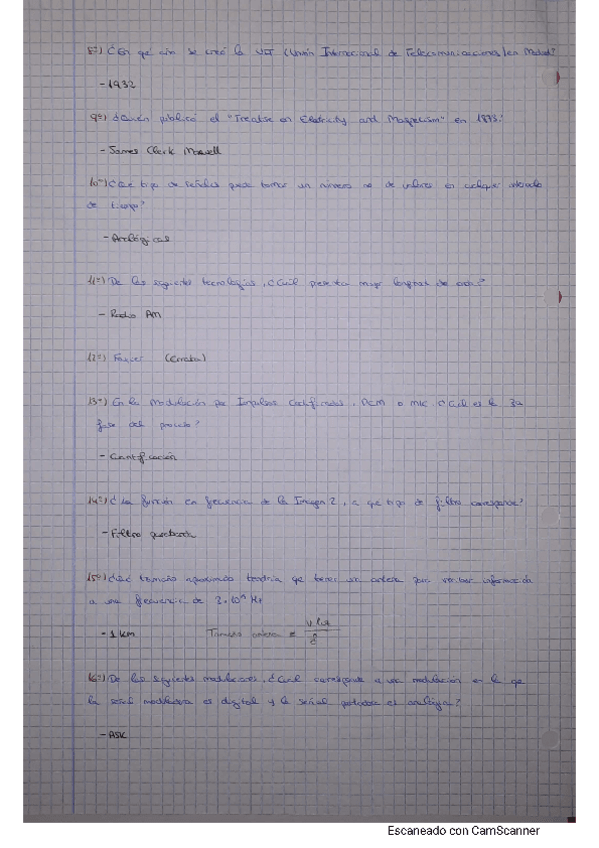 8º) ¿En qué año se creó la UIT (Unión Internacional de Telecomunicaciones) en Madrid?
- 1932
9º) ¿Quién publicó el "Treatise on Electricity and Magnetism" en 1873?
- James Clerk Maxwell
10º) ¿Qué tipo de señales puede tomar un número de valores en cualquier intervalo
de tiempo?
- Analógicas
11º) De las siguientes tecnologías, ¿Cuál presenta mayor longitud de onda?
- Radio AM
12º) Fourier
13º) En la Modulación por Impulsos Codificados, PCM o MIC ¿Cuál es la 3a
fase del proceso?
- Cuantificación
14º) ¿La función en frecuencia de la Imagen 2, a qué tipo de filtro corresponde?
- Filtro pasabanda
15º) ¿Qué tamaño aproximado tendría que tener una antena para recibir información
a una frecuencia de Hz
- 1 km Tamaño antena =
16º) De las siguientes modulaciones, ¿Cuál corresponde a una modulación en la que
la señal moduladora es digital y la señal portadora es analógica?
- ASK
Escaneado con CamScanner